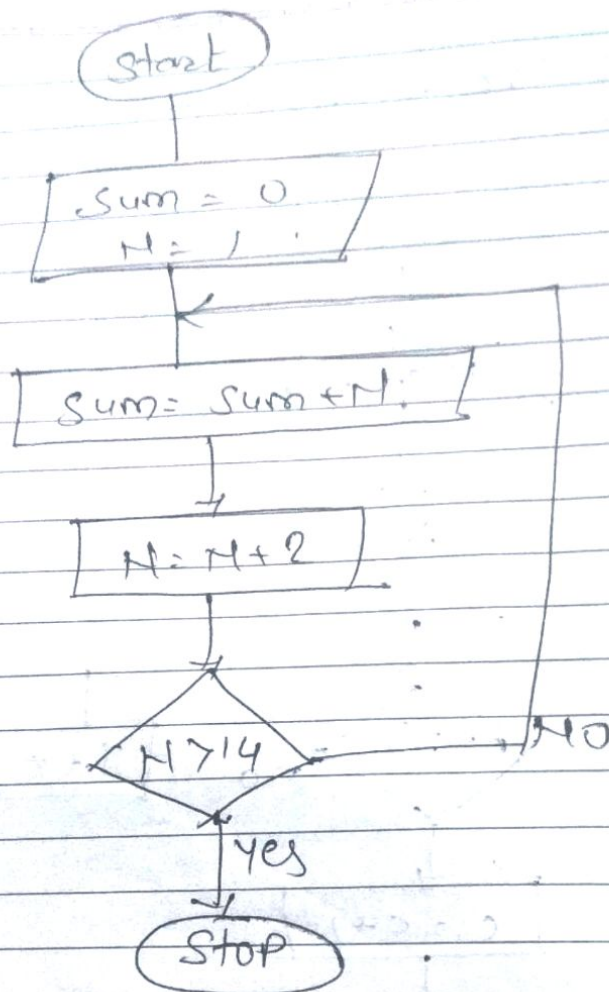 Start
Sum = 0
N = 1
Sum = Sum + N.
N = N + 2
N > 14
NO
Yes
Stop